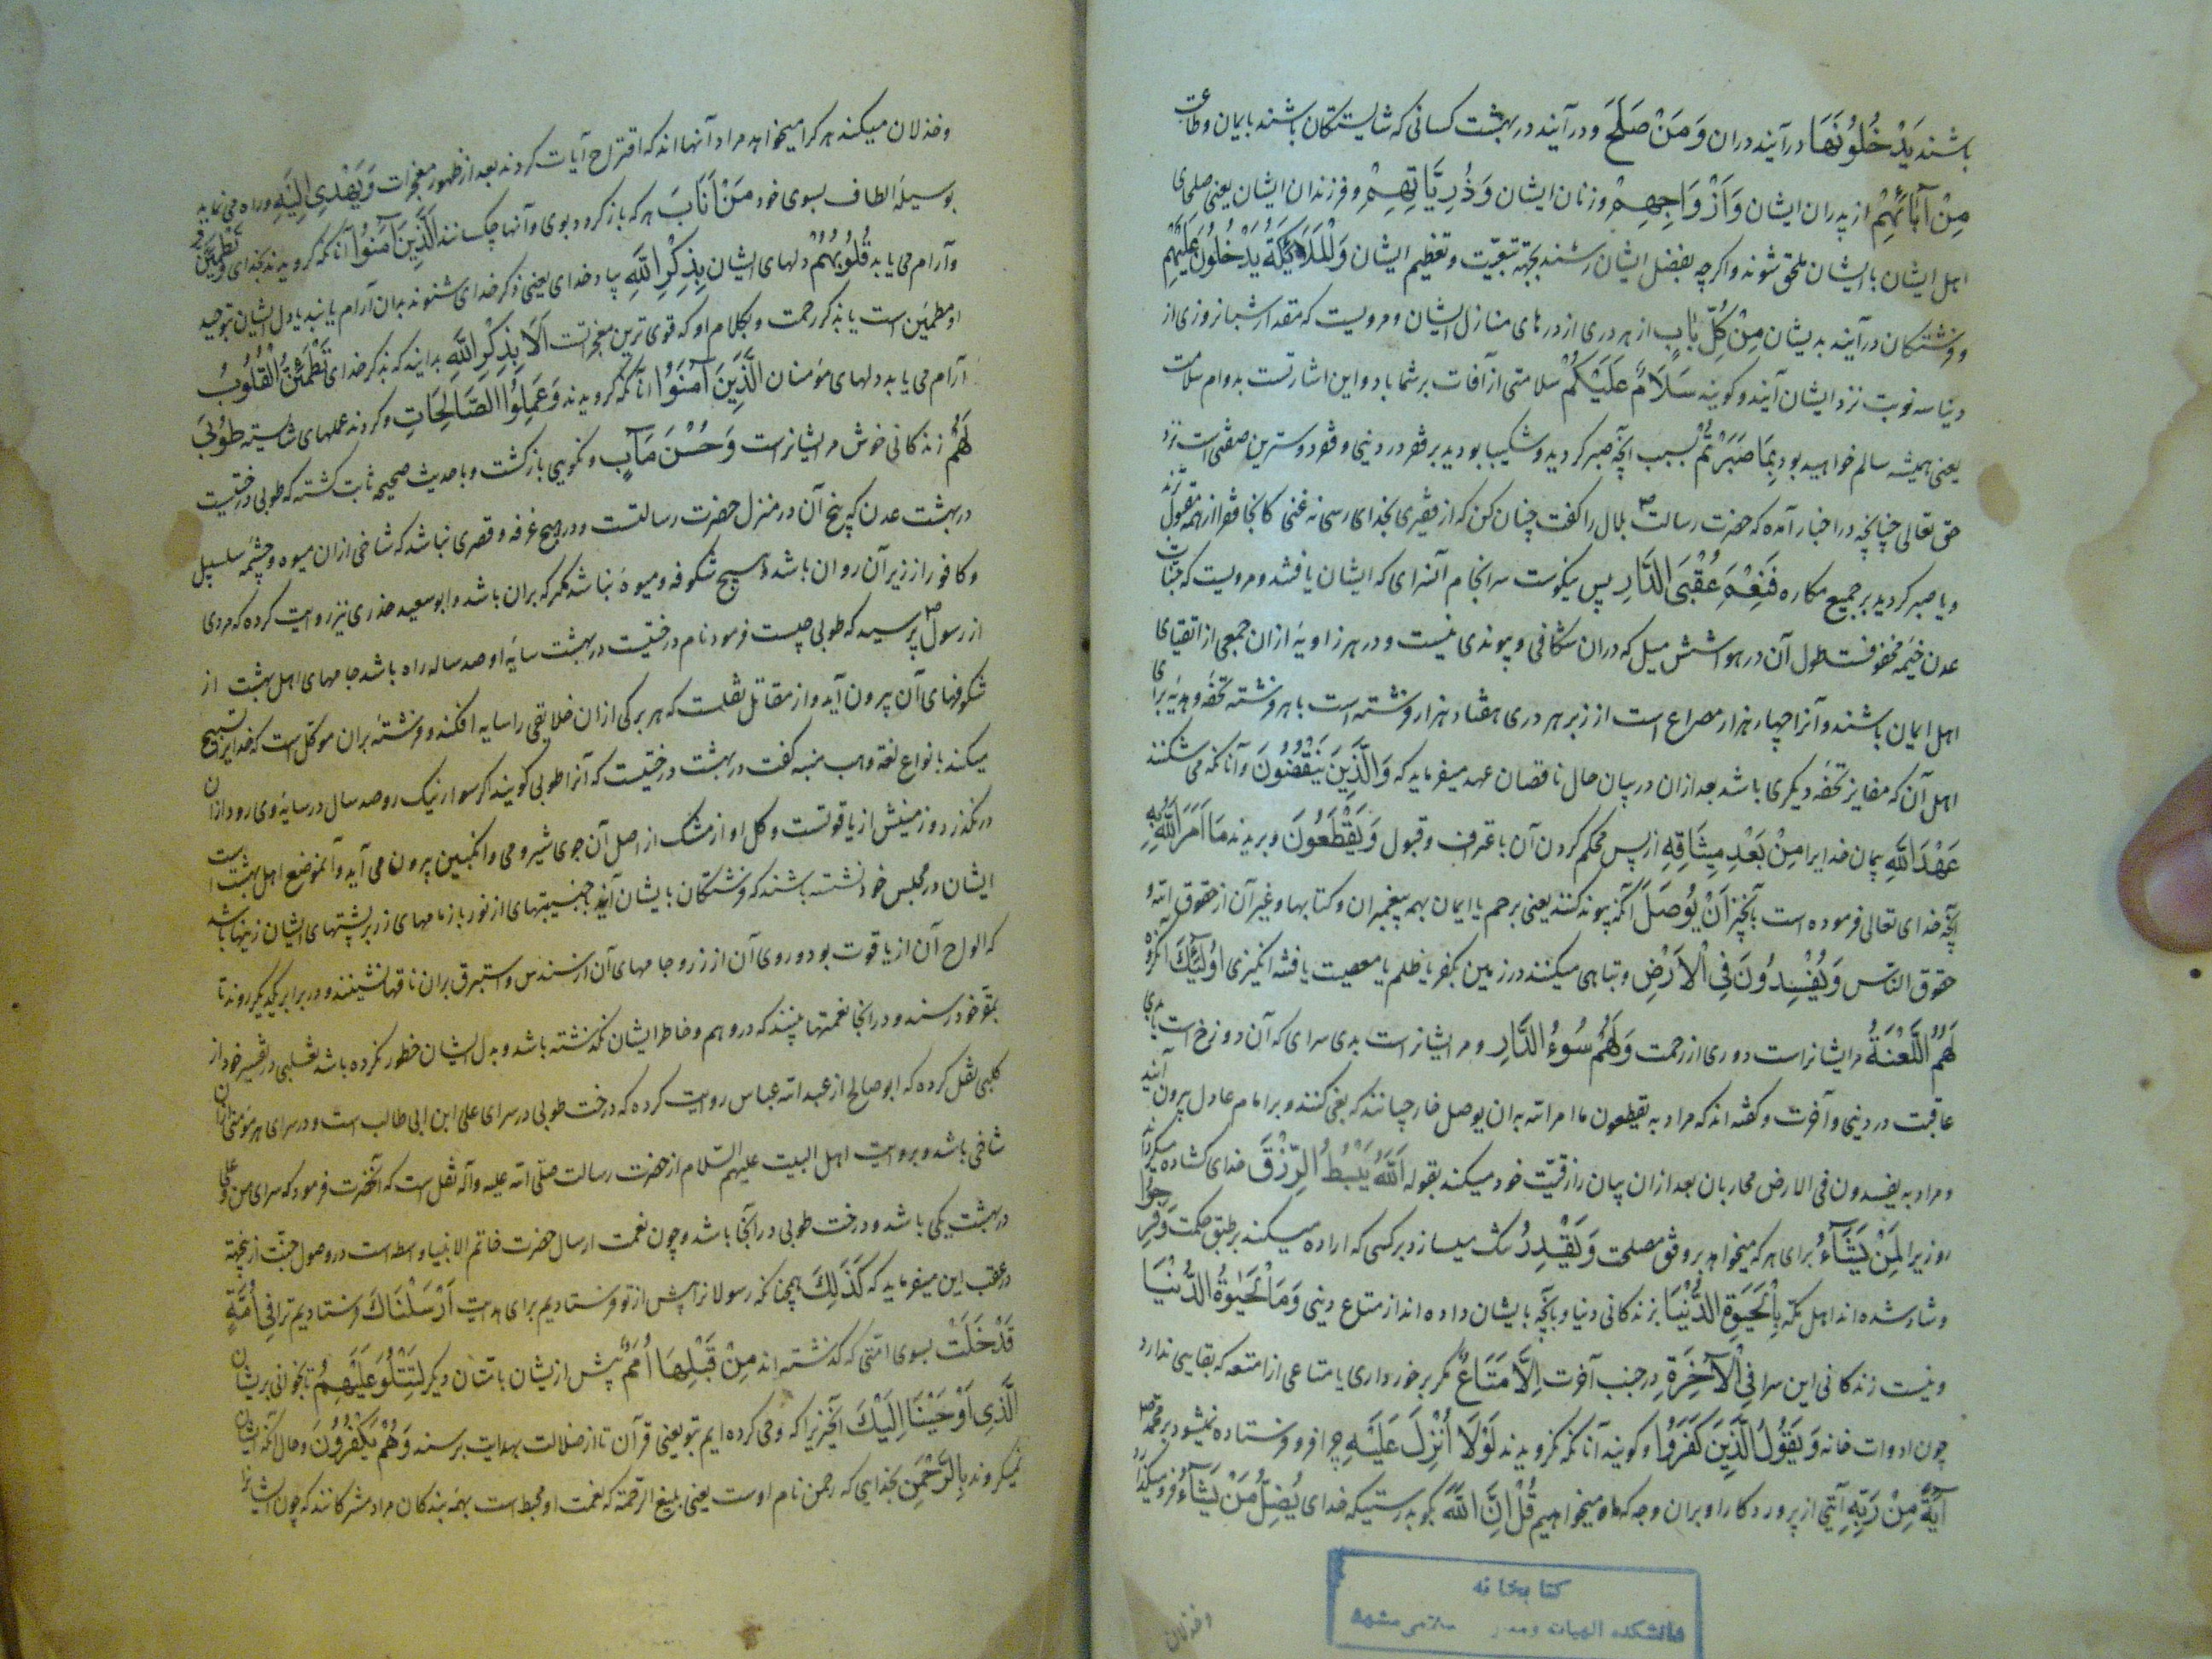 باشند یَدْخُلُونَهَا درآیند دران وَمَنْ صَلَحَ و درآیند در بهشت کسانی که شایستکان باشند بایمان و طاعت
مِنْ آبَائِهِمْ از پدران ایشان وَاَزْوَاجِهِمْ و زنان ایشان وَذُرِّیَّاتِهِمْ و فرزندان ایشان یعنی صلحای
اهل ایشان با ایشان ملحق شوند و اکرچه بفضل ایشان نرسند بجهة تبعیّت و تعظیم ایشان وَالْمَلَائِکَةُ یَدْخُلُونَ عَلَیْهِمْ
و فرشتکان درآیند بدیشان مِنْ کُلِّ بَابٍ از هر دری از درهای منازل ایشان و مرویست که مقدار شبانروزی از
دنیا سه نوبت نزد ایشان آیند و کویند سَلَامٌ عَلَیْکُمْ سلامتی از آفات بر شما باد و این اشارتست بدوام سلامت
یعنی همیشه سالم خواهید بود بِمَا صَبَرْتُمْ بسبب آنچه صبر کردید و شکیبا بودید بر فقر در دنیی و فقر دوسترین صفتی است نزد
حق تعالی چنانچه در اخبار آمده که حضرت رسالت ص بلال را کفت چنان کن که از فقیری بخدای رسی نه غنی کانجا فقرا از همه مقبول ترند
و یا صبر کردید بر جمیع مکاره فَنِعْمَ عُقْبَی الدَّارِ پس نیکوست سرانجام آنسرای که ایشان یافتند و مرویست که جنّات
عدن خیمه مجوفست طول آن در هوا شش میل که دران شکافی و پیوندی نیست و در هر زاویهٔ ازان جمعی از اتقیای
اهل ایمان باشند و آنرا چهار هزار مصراع است از زبر هر دری هفتاد هزار فرشته است با هر فرشته تحفه و هدیهٔ برای
اهل آن که مغایر تحفه دیکری باشد بعد ازان در بیان حال ناقضان عهد میفرماید که وَالَّذِینَ یَنْقُضُونَ و آنانکه می شکنند
عَهْدَ اللّٰهِ پیمان خدایرا مِنْ بَعْدِ مِیثَاقِهِ از پس محکم کردن آن باعتراف و قبول وَیَقْطَعُونَ و بریدند مَا اَمَرَ اللّٰهُ بِهِ
آنچه خدای تعالی فرموده است بآنچیز اَنْ یُوصَلَ آنکه پیوند کنند یعنی برحم یا ایمان بهمه پیغمبران و کتابها و غیر آن از حقوق اللّه و
حقوق الناس وَیُفْسِدُونَ فِی الْاَرْضِ و تباهی میکنند در زمین بکفر یا ظلم یا معصیت یا فتنه انکیزی اُولٰئِکَ آنکروه
لَهُمُ اللَّعْنَةُ مر ایشانراست دوری از رحمت وَلَهُمْ سُوءُ الدَّارِ و مر ایشانراست بدی سرای که آن دوزخ است یا بدی
عاقبت در دنیی و آخرت و کفته اند که مراد به یقطعون ما امر اللّه به ان یوصل خارجیانند که بغی کنند و بر امام عادل بیرون آیند
و مراد به یفسدون فی الارض محاربان بعد ازان بیان رازقیّت خود میکند بقوله اَللّٰهُ یَبْسُطُ الرِّزْقَ خدای کشاده میکرداند
روزیرا لِمَنْ یَشَآءُ برای هر که میخواهد بر وفق مصلحت وَیَقْدِرُ تنک میسازد بر کسی که اراده میکند بر طبق حکمت وَفَرِحُوا
و شاد شده اند اهل مکه بِالْحَیٰوةِ الدُّنْیَا بزندکانی دنیا و بآنچه بایشان داده اند از متاع دنیی وَمَا الْحَیٰوةُ الدُّنْیَا
و نیست زندکانی این سرا فِی الْآخِرَةِ در جنب آخرت اِلَّا مَتَاعٌ مکر برخورداری یا متاعی از امتعه که بقایی ندارد
چون ادوات خانه وَیَقُولُ الَّذِینَ کَفَرُوا و کویند آنانکه نکرویدند لَوْلَا اُنْزِلَ عَلَیْهِ چرا فرو فرستاده نمیشود بر محمد ص
آیَةٌ مِنْ رَبِّهِ آیتی از پروردکار او بران وجه که ما میخواهیم قُلْ اِنَّ اللّٰهَ بکو بدرستیکه خدای یُضِلُّ مَنْ یَشَآءُ فرو میکذارد
و خذلان
کتابخانه
دانشکده الهیات و معارف اسلامی مشهد
و خذلان میکند هر کرا میخواهد مراد آنهااند که اقتراح آیات کردند بعد از ظهور معجزات وَیَهْدِی اِلَیْهِ و راه می نماید
بوسیلهٔ الطاف بسوی خود مَنْ اَنَابَ هر که بازکردد بوی و آنها چه کسانند اَلَّذِینَ آمَنُوا آنانکه کرویدند بخدای وَتَطْمَئِنُّ
و آرام می یابد قُلُوبُهُمْ دلهای ایشان بِذِکْرِ اللّٰهِ بیاد خدای یعنی ذکر خدای شنوند بدان آرام یابند یا دل ایشان بتوحید
او مطمئن است یا بذکر رحمت و بکلام او که قوی ترین معجزاتست اَلَا بِذِکْرِ اللّٰهِ بدانید که بذکر خدای تَطْمَئِنُّ الْقُلُوبُ
آرام می یابد دلهای مؤمنان اَلَّذِینَ آمَنُوا آنانکه کرویدند وَعَمِلُوا الصَّالِحَاتِ و کردند عملهای شایسته طُوبٰی
لَهُمْ زندکانی خوش مر ایشانراست وَحُسْنُ مَآبٍ و نکویی بازکشت و باحدیث صحیحه ثابت کشته که طوبی درختیست
در بهشت عدن که بیخ آن در منزل حضرت رسالتست و در هیچ غرفه و قصری نباشد که شاخی ازان میوه و چشمه سلسبیل
و کافور از زیر آن روان باشد و هیچ شکوفه و میوهٔ نباشد مکر که بران باشد و ابو سعید خدری نیز روایت کرده که مردی
از رسول ص پرسید که طوبی چیست فرمود نام درختیست در بهشت سایهٔ او صد ساله راه باشد جامهای اهل بهشت از
شکوفهای آن بیرون آید و از مقاتل نقلست که هر برکی ازان خلایقی را سایه افکند و فرشتهٔ بران موکل است که خدایرا تسبیح
میکند بانواع لغة وهب منبه کفت در بهشت درختیست که آنرا طوبی کویند اکر سوار نیک رو صد سال در سایهٔ وی رود ازان
درنکذرد و زمینش از یاقوتست و کل او از مشک از اصل آن جوی شیر و می و انکبین بیرون می آید و آنموضع اهل بهشت است
ایشان در مجلس خود نشسته باشند که فرشتکان بایشان آیند جنیبتهای از نور با زمامهای زر بر پشتهای ایشان زینها باشد
که الواح آن از یاقوت بود و روی آن از زر و جامهای آن از سندس و استبرق بران ناقها نشینند و در برابر یکدیکر روند تا
بمقر خود رسند و در آنجا نعمتها بینند که در وهم و خاطر ایشان نکذشته باشد و بدل ایشان خطور نکرده باشد ثعلبی در تفسیر خود از
کلبی نقل کرده که ابو صالح از عبد اللّه عباس روایت کرده که درخت طوبی در سرای علی ابن ابی طالب است و در سرای هر مؤمنی ازان
شاخی باشد و بروایت اهل البیت علیهم السّلام از حضرت رسالت صلی اللّه علیه وآله نقل است که آنحضرت فرمود که سرای من و علی
در بهشت یکی باشد و درخت طوبی در آنجا باشد و چون نعمت ارسال حضرت خاتم الانبیا واسطه است در وصول جنّت ازینجهة
در عقب این میفرماید که کَذٰلِکَ همچنانکه رسولانرا پیش از تو فرستادیم برای هدایت اَرْسَلْنَاکَ فرستادیم ترا فِی اُمَّةٍ
قَدْ خَلَتْ بسوی امتی که کذشته اند مِنْ قَبْلِهَا اُمَمٌ پیش از ایشان باتتان دیکر لِتَتْلُوَ عَلَیْهِمُ تا بخوانی بریشان
الَّذِی اَوْحَیْنَا اِلَیْکَ آنچیزیرا که وحی کرده ایم بتو یعنی قرآن تا از ضلالت بهدایت برسند وَهُمْ یَکْفُرُونَ و حال آنکه ایشان
نمیکروند بِالرَّحْمٰنِ بخدایی که رحمن نام اوست یعنی بلیغ الرحمة که نعمت او محیط است بهمهٔ بندکان مراد مشرکانند که چون ایشانرا